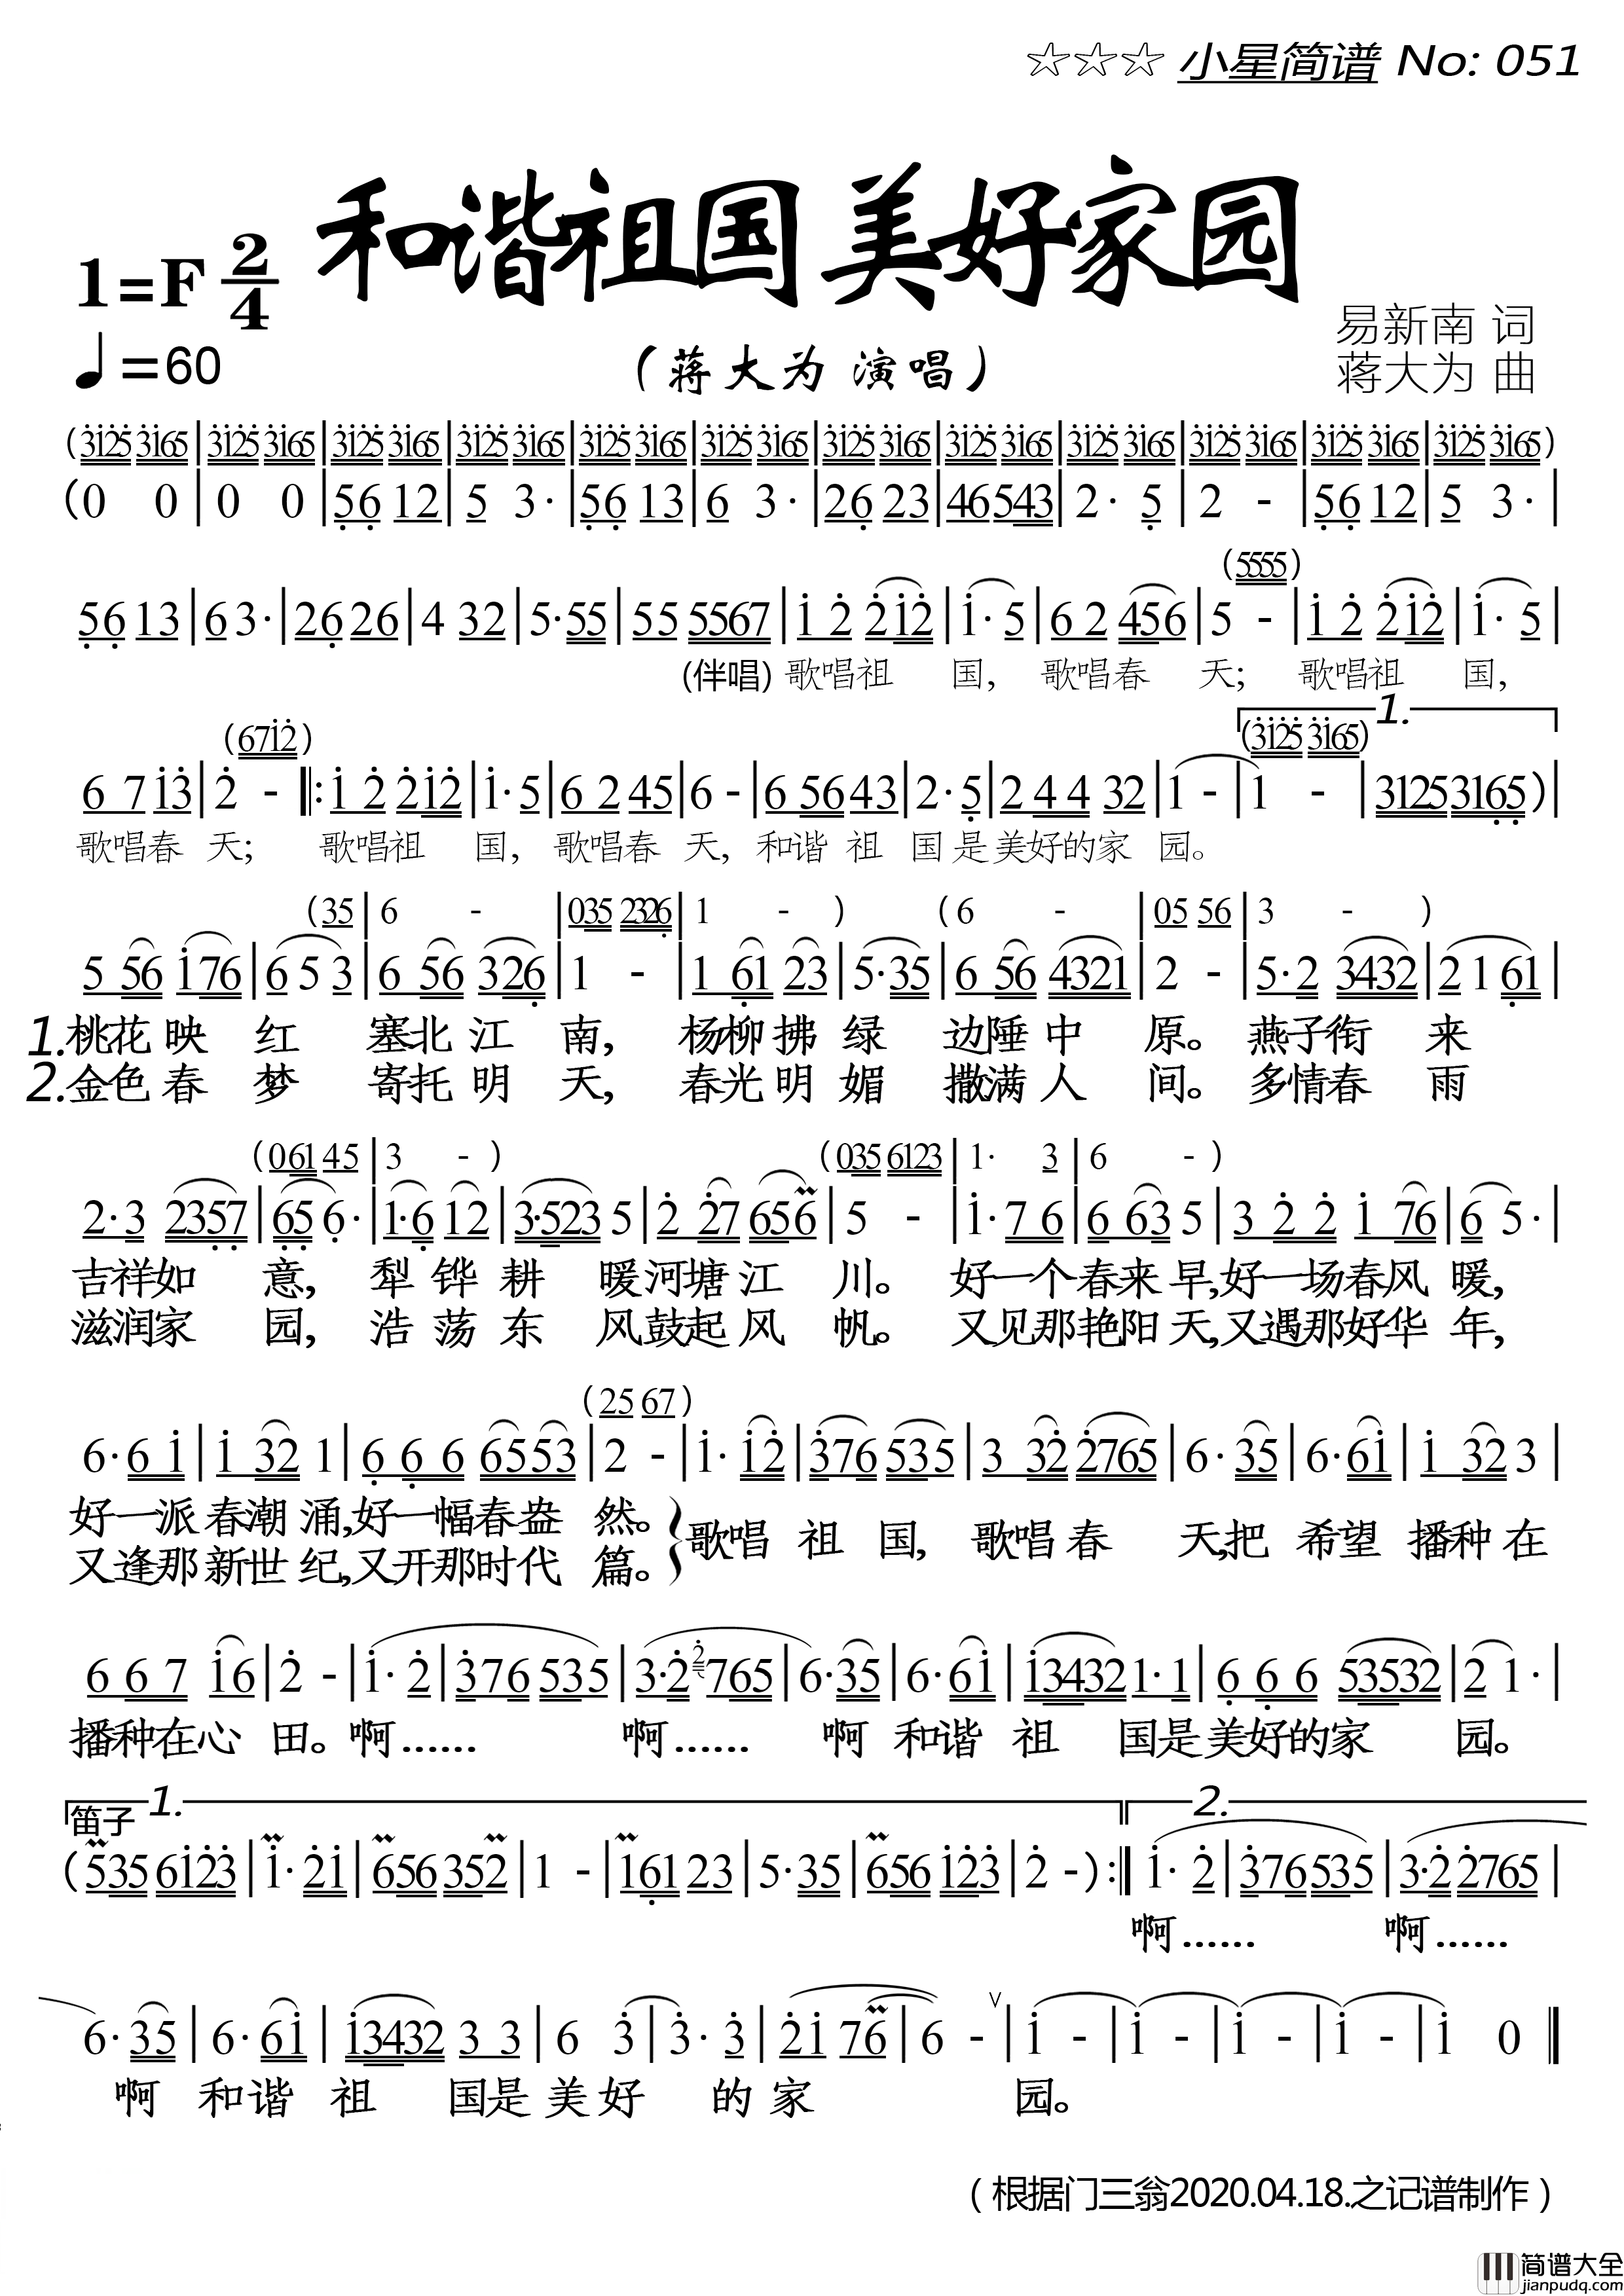 ☆☆☆ 小星简谱 No: 051
和谐祖国 美好家园
1=F 2/4
♩=60
(蒋大为 演唱)
易新南 词
蒋大为 曲
(3̇1̇2̇5 3̇1̇65|3̇1̇2̇5 3̇1̇65|3̇1̇2̇5 3̇1̇65|3̇1̇2̇5 3̇1̇65|3̇1̇2̇5 3̇1̇65|3̇1̇2̇5 3̇1̇65|3̇1̇2̇5 3̇1̇65|3̇1̇2̇5 3̇1̇65|3̇1̇2̇5 3̇1̇65|3̇1̇2̇5 3̇1̇65|3̇1̇2̇5 3̇1̇65|3̇1̇2̇5 3̇1̇65)
(0 0|0 0|5̣6̣ 12|5 3·|5̣6̣ 13|6 3·|26̣ 23|46543|2· 5̣|2 -|5̣6̣ 12|5 3·|
(5555)
5̣6̣ 13|6 3·|26̣ 26|4 32|5·55|55 5567|1̇ 2̇ 2̇1̇2̇|1̇· 5|6 2 456|5 -|1̇ 2̇ 2̇1̇2̇|1̇· 5|
(伴唱) 歌唱祖 国, 歌唱春 天; 歌唱祖 国,
1.
(671̇2̇) (3̇1̇2̇5 3̇1̇65)
6 7 1̇3̇|2̇ -‖:1̇ 2̇ 2̇1̇2̇|1̇·5|6 2 45|6 -|6 56 43|2·5̣|2 4 4 32|1 -|1 -|3125316̣5̣)|
歌唱春 天; 歌唱祖 国, 歌唱春 天, 和谐 祖 国 是 美好的家 园。
(35|6 -|035 2326̣|1 -) (6 -|05 56|3 -)
5 56 1̇76|6 5 3|6 56 326̣|1 -|1 6̣1 23|5·35|6 56 4321|2 -|5·2 3432|2 1 6̣1|
1.桃花 映 红 塞北 江 南, 杨柳 拂 绿 边陲 中 原。 燕子衔 来
2.金色 春 梦 寄托 明 天, 春光 明 媚 撒满 人 间。 多情春 雨
(061 45|3 -) (035 6123|1· 3|6 -)
2·3 2357̣|6̣5̣ 6̣·|1·6̣ 12|3·523 5|2̇ 2̇7 656|5 -|1̇·7 6|6 63 5|3 2̇ 2̇ 1̇ 76|6 5·|
吉祥如 意, 犁 铧 耕 暖河塘 江 川。 好一个春来 早,好一场春风 暖,
滋润家 园, 浩 荡 东 风鼓起 风 帆。 又见那艳阳 天,又遇那好华 年,
(25 67)
6·6 1̇|1̇ 32 1|6̣ 6̣ 6 6553|2 -|1̇· 1̇2̇|3̇76 535|3 32̇ 2̇765|6·35|6·61̇|1̇ 32 3|
好一派 春潮 涌,好一幅春盎 然。
又逢那 新世 纪,又开那时代 篇。
歌唱 祖 国, 歌唱春 天,把 希望 播种 在
6 6 7 1̇6|2̇ -|1̇· 2̇|3̇76 535|3·2̇ 2̇765|6·35|6·61̇|1̇3432 1·1|6̣ 6̣ 6 53532|2 1·|
播种在心 田。啊…… 啊…… 啊 和谐 祖 国是美好的家 园。
1. 2.
笛子
(535 61̇2̇3̇|1̇·2̇1̇|656352̇|1 -|16̣1 23|5·35|656 1̇2̇3̇|2̇ -):‖1̇· 2̇|3̇76535|3·2̇ 2̇765|
啊…… 啊……
6·35|6·61̇|1̇3432 3 3|6 3̇|3̇· 3̇|2̇1̇ 76|6 -∨|1̇ -|1̇ -|1̇ -|1̇ -|1̇ 0‖
啊 和谐 祖 国是美好 的家 园。
(根据门三翁2020.04.18.之记谱制作)
简谱大全
jianpudq.com